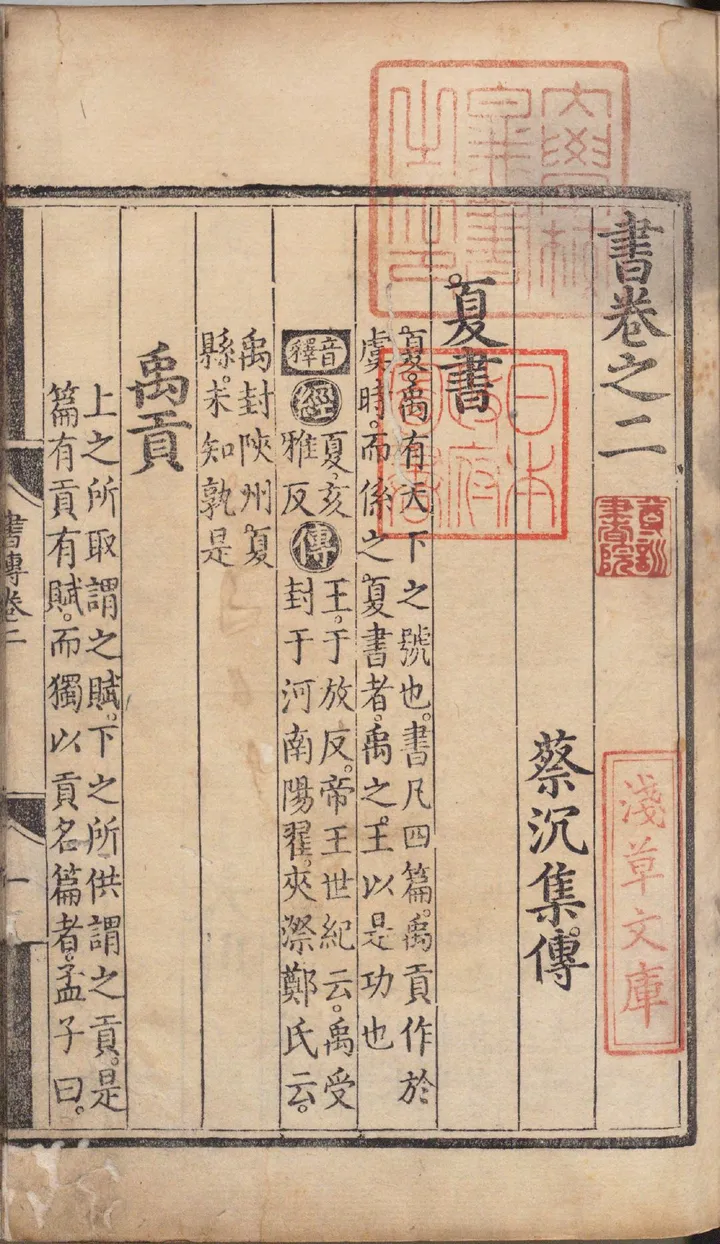 書卷之二
蔡沉集傳
夏書
夏。禹有天下之號也。書凡四篇。禹貢作於
虞時。而係之夏書者。禹之王以是功也
音釋
經
夏亥
雅反
傳
王。于放反。帝王世紀云。禹受
封于河南陽翟。夾漈鄭氏云。
禹封陝州夏
縣。未知孰是
禹貢
上之所取謂之賦。下之所供謂之貢。是
篇有貢有賦。而獨以貢名篇者。孟子曰。
書傳卷二
一
日本
政府
圖書
尊訓
書院
淺草文庫